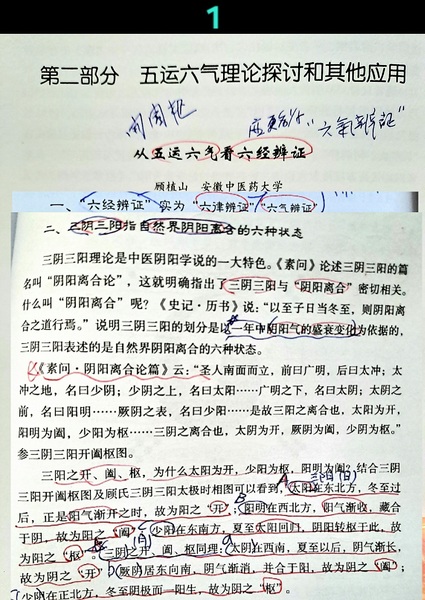 1
第二部分　五运六气理论探讨和其他应用
开阖枢
应更名为“六气辨证”
从五运六气看六经辨证
顾植山　安徽中医药大学
一、“六经辨证”实为“六律辨证”“六气辨证”
二、三阴三阳指自然界阴阳离合的六种状态
三阴三阳理论是中医阴阳学说的一大特色。《素问》论述三阴三阳的篇
名叫“阴阳离合论”，这就明确指出了三阴三阳与“阴阳离合”密切相关。
什么叫“阴阳离合”呢？《史记·历书》说：“以至子日当冬至，则阴阳离
合之道行焉。”说明三阴三阳的划分是以一年中阴阳气的盛衰变化为依据的，
三阴三阳表述的是自然界阴阳离合的六种状态。
《素问·阴阳离合论篇》云：“圣人南面而立，前曰广明，后曰太冲；太
冲之地，名曰少阴；少阴之上，名曰太阳……广明之下，名曰太阴；太阴之
前，名曰阳明……厥阴之表，名曰少阳……是故三阳之离合也，太阳为开，
阳明为阖，少阳为枢……三阴之离合也，太阴为开，厥阴为阖，少阴为枢。”
参三阴三阳开阖枢图。
三阳之开、阖、枢，为什么太阳为开，少阳为枢，阳明为阖？结合三阴
三阳开阖枢图及顾氏三阴三阳太极时相图可以看到，太阳在东北方，冬至过
后，正是阳气渐开之时，故为阳之“开”；阳明在西北方，阳气渐收，藏合
于阴，故为阳之“阖”；少阳在东南方，夏至太阳回归，阴阳转枢于此，故
为阳之“枢”。三阴之开、阖、枢同理：太阴在西南，夏至以后，阴气渐长，
故为阴之“开”；厥阴居东向南，阴气渐消，并合于阳，故为阴之“阖”；
少阴在正北方，冬至阴极而一阳生，故为阴之“枢”。